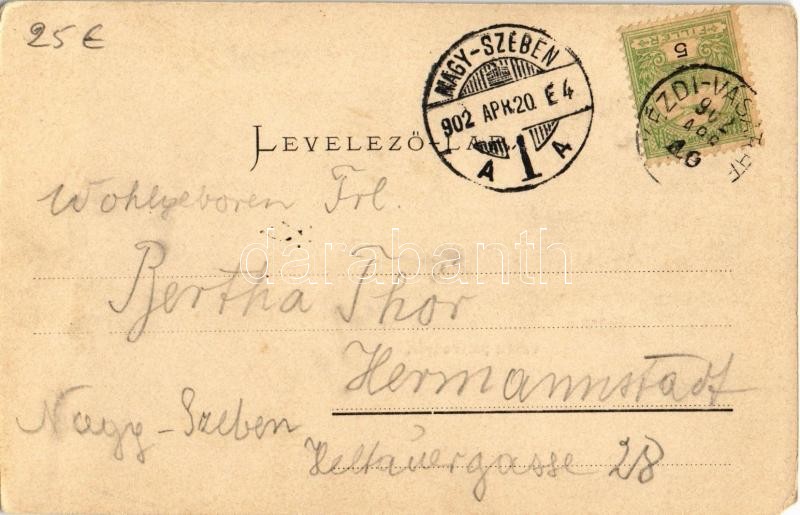 25 €
NAGY-SZEBEN
902 APR. 20. E 4
A 1 A
5
FILLÉR
LEVELEZŐ-LAP.
Wohlgeboren Frl.
darabanth
Bertha Thör
Hermannstadt
Nagy-Szeben
Heltauergasse 28